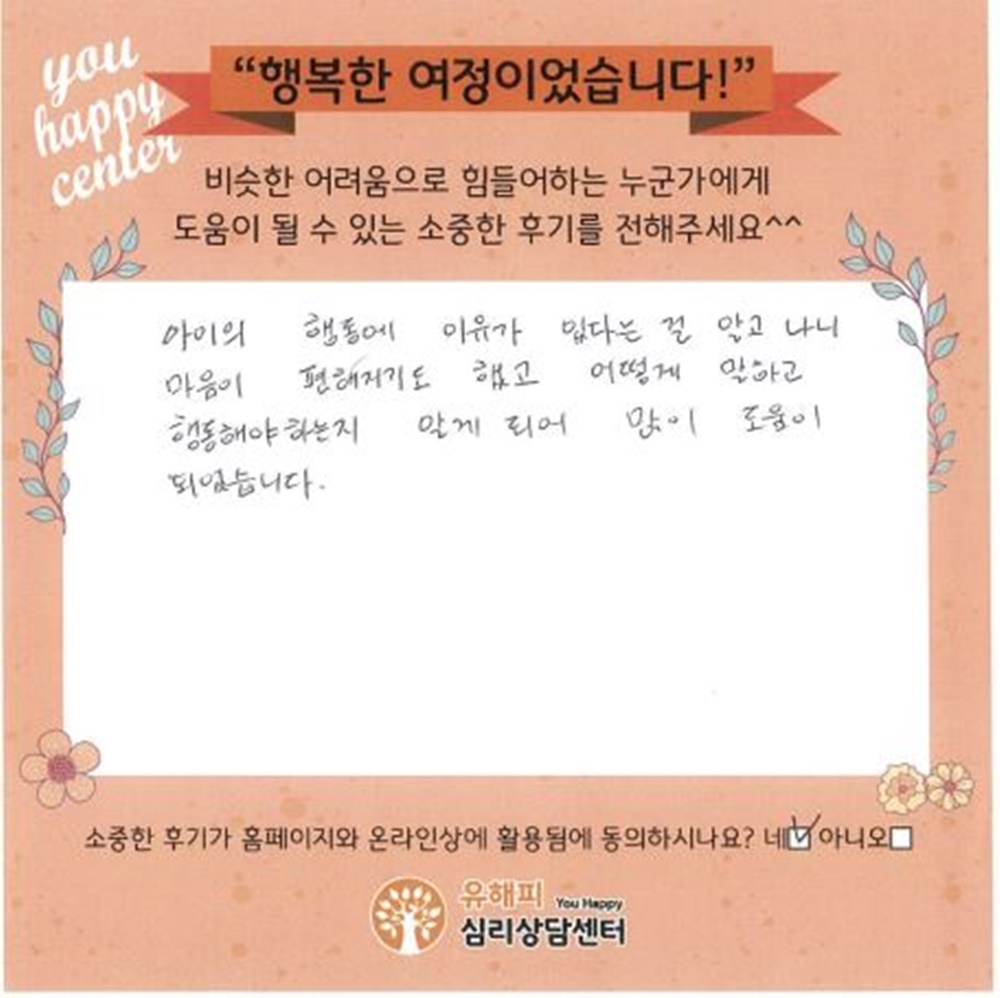 you
happy
center
“행복한 여정이었습니다!”
비슷한 어려움으로 힘들어하는 누군가에게
도움이 될 수 있는 소중한 후기를 전해주세요^^
아이의 행동에 이유가 있다는 걸 알고 나니
마음이 편해지기도 했고 어떻게 말하고
행동해야 하는지 알게 되어 많이 도움이
되었습니다.
소중한 후기가 홈페이지와 온라인상에 활용됨에 동의하시나요? 네☑ 아니오☐
유해피 You Happy
심리상담센터